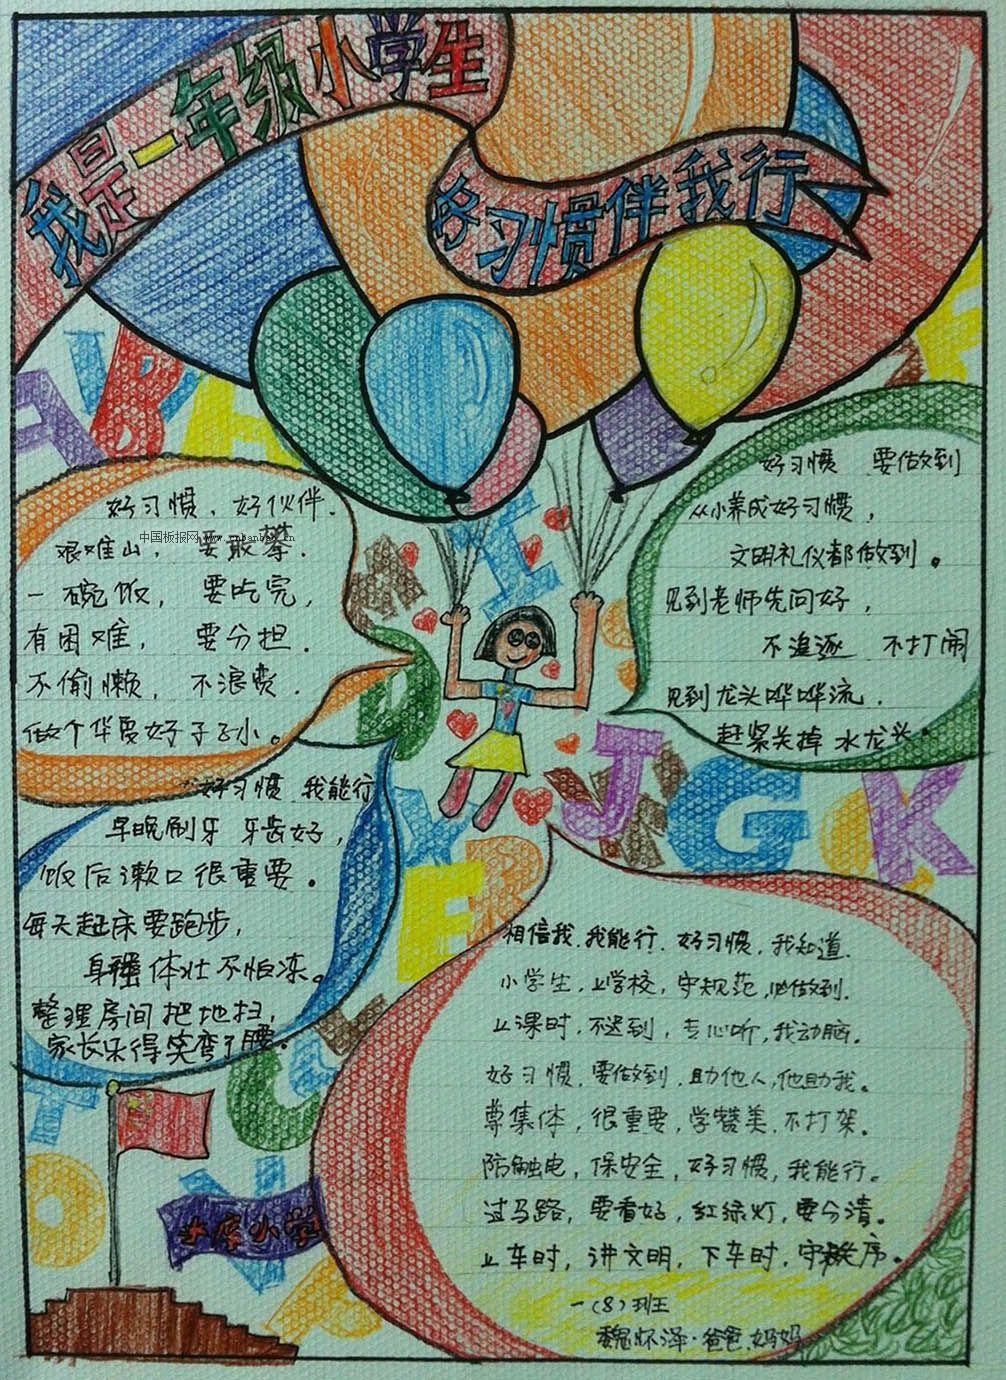 我是一年级小学生
好习惯伴我行
好习惯，好伙伴．
艰难山，要敢攀．
中国板报网 www.cnbanbao.cn
一碗饭，要吃完，
有困难，要分担．
不偷懒，不浪费．
做个华夏好子孑小。
好习惯 我能行
早晚刷牙 牙齿好，
饭后漱口很重要。
每天起床要跑步，
身强体壮不怕冻。
整理房间把地扫，
家长乐得笑弯了腰。
好习惯 要做到
从小养成好习惯，
文明礼仪都做到。
见到老师先问好，
不追逐 不打闹
见到龙头哗哗流，
赶紧关掉水龙头．
相信我，我能行．好习惯，我知道．
小学生，上学校，守规范，必做到．
上课时，不迟到，专心听，我动脑。
好习惯，要做到，助他人，他助我。
尊集体，很重要，学赞美，不打架．
防触电，保安全，好习惯，我能行。
过马路，要看好，红绿灯，要分清。
上车时，讲文明，下车时，守秩序。
一（8）班王
魏怀泽·爸爸．妈妈
小学